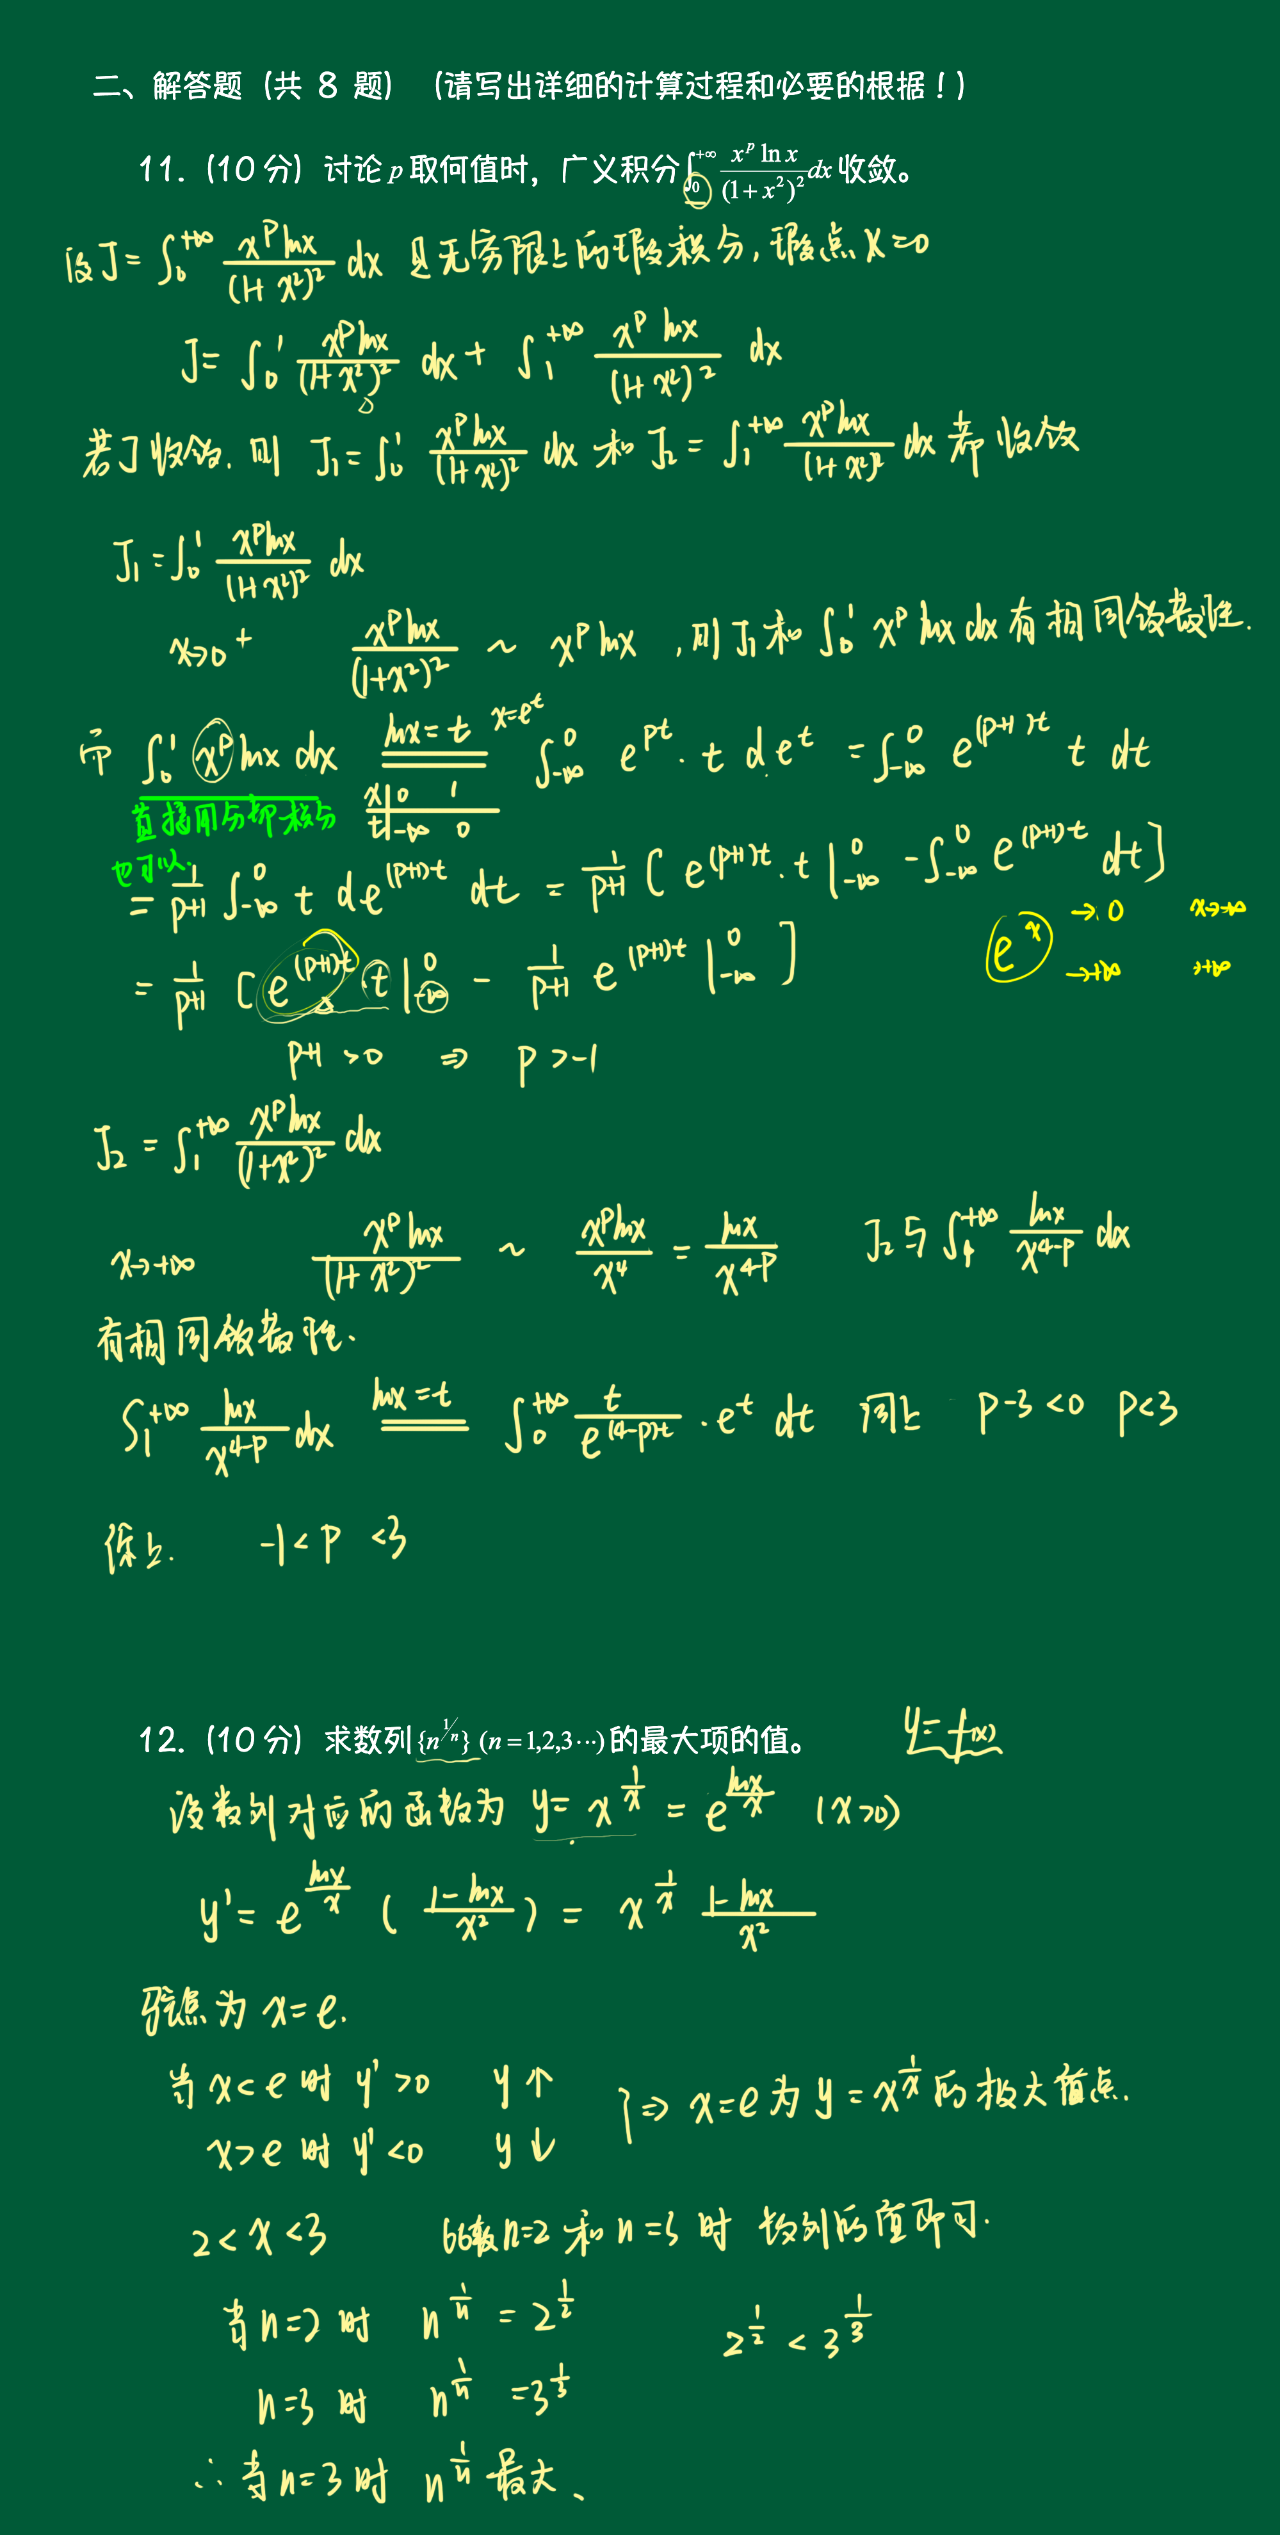 二、解答题（共 8 题）（请写出详细的计算过程和必要的根据！）
11.（10 分）讨论 p 取何值时，广义积分 ∫_0^{+∞} x^p ln x/(1+x²)² dx 收敛。
设 J = ∫_0^{+∞} x^p ln x/(1+x²)² dx 是无穷限上的瑕积分, 瑕点 x=0
J = ∫_0^1 x^p ln x/(1+x²)² dx + ∫_1^{+∞} x^p ln x/(1+x²)² dx
若 J 收敛, 则 J₁ = ∫_0^1 x^p ln x/(1+x²)² dx 和 J₂ = ∫_1^{+∞} x^p ln x/(1+x²)² dx 都收敛
J₁ = ∫_0^1 x^p ln x/(1+x²)² dx
x→0⁺ x^p ln x/(1+x²)² ~ x^p ln x , 则 J₁ 和 ∫_0^1 x^p ln x dx 有相同敛散性.
而 ∫_0^1 x^p ln x dx ln x = t x=e^t ∫_{-∞}^0 e^{pt}·t de^t = ∫_{-∞}^0 e^{(p+1)t} t dt
x 0 1
t -∞ 0
直接用分部积分
也可以.
= 1/(p+1) ∫_{-∞}^0 t de^{(p+1)t} dt = 1/(p+1) [ e^{(p+1)t}·t |_{-∞}^0 - ∫_{-∞}^0 e^{(p+1)t} dt ]
= 1/(p+1) [ e^{(p+1)t} t |_{-∞}^0 - 1/(p+1) e^{(p+1)t} |_{-∞}^0 ]
e^x →0 x→-∞
→+∞ →+∞
p+1 >0 ⇒ p >-1
J₂ = ∫_1^{+∞} x^p ln x/(1+x²)² dx
x→+∞ x^p ln x/(1+x²)² ~ x^p ln x/x⁴ = ln x/x^{4-p} J₂与 ∫_1^{+∞} ln x/x^{4-p} dx
有相同敛散性.
∫_1^{+∞} ln x/x^{4-p} dx ln x = t ∫_0^{+∞} t/e^{(4-p)t}·e^t dt 同上 p-3<0 p<3
综上. -1<p<3
12.（10 分）求数列 {n^{1/n}} (n=1,2,3···) 的最大项的值。
y=f(x)
设数列对应的函数为 y= x^{1/x} = e^{ln x/x} (x>0)
y' = e^{ln x/x} ( (1-ln x)/x² ) = x^{1/x} (1-ln x)/x²
驻点为 x=e.
当 x<e 时 y'>0 y↑
x>e 时 y'<0 y↓
} ⇒ x=e 为 y=x^{1/x} 的极大值点.
2<x<3 比较 n=2 和 n=3 时 数列的值即可.
当 n=2 时 n^{1/n} = 2^{1/2}
2^{1/2} < 3^{1/3}
n=3 时 n^{1/n} =3^{1/3}
∴ 当 n=3 时 n^{1/n} 最大、